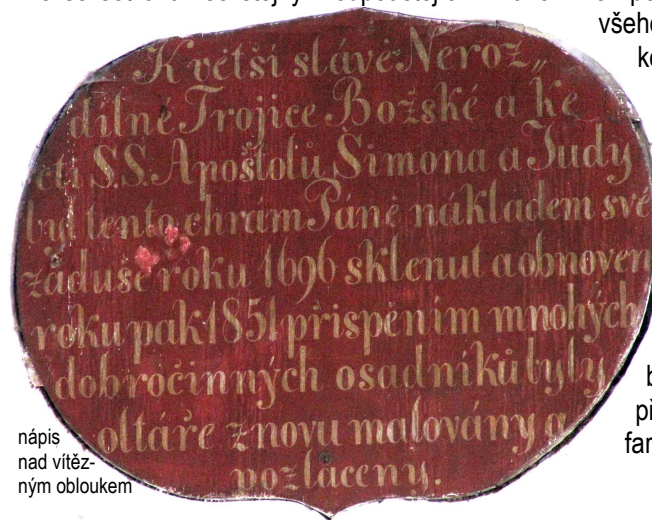 všeho
K větší slávě Neroz„
dílné Trojice Božské a ke
cti S.S. Apoštolů Šimona a Judy
byl tento chrám Páně nákladem své
záduše roku 1696 sklenut a obnoven
roku pak 1851 přispěním mnohých
dobročinných osadníků byly
oltáře znovu malovány a
pozlaceny.
nápis
nad vítěz-
ným obloukem